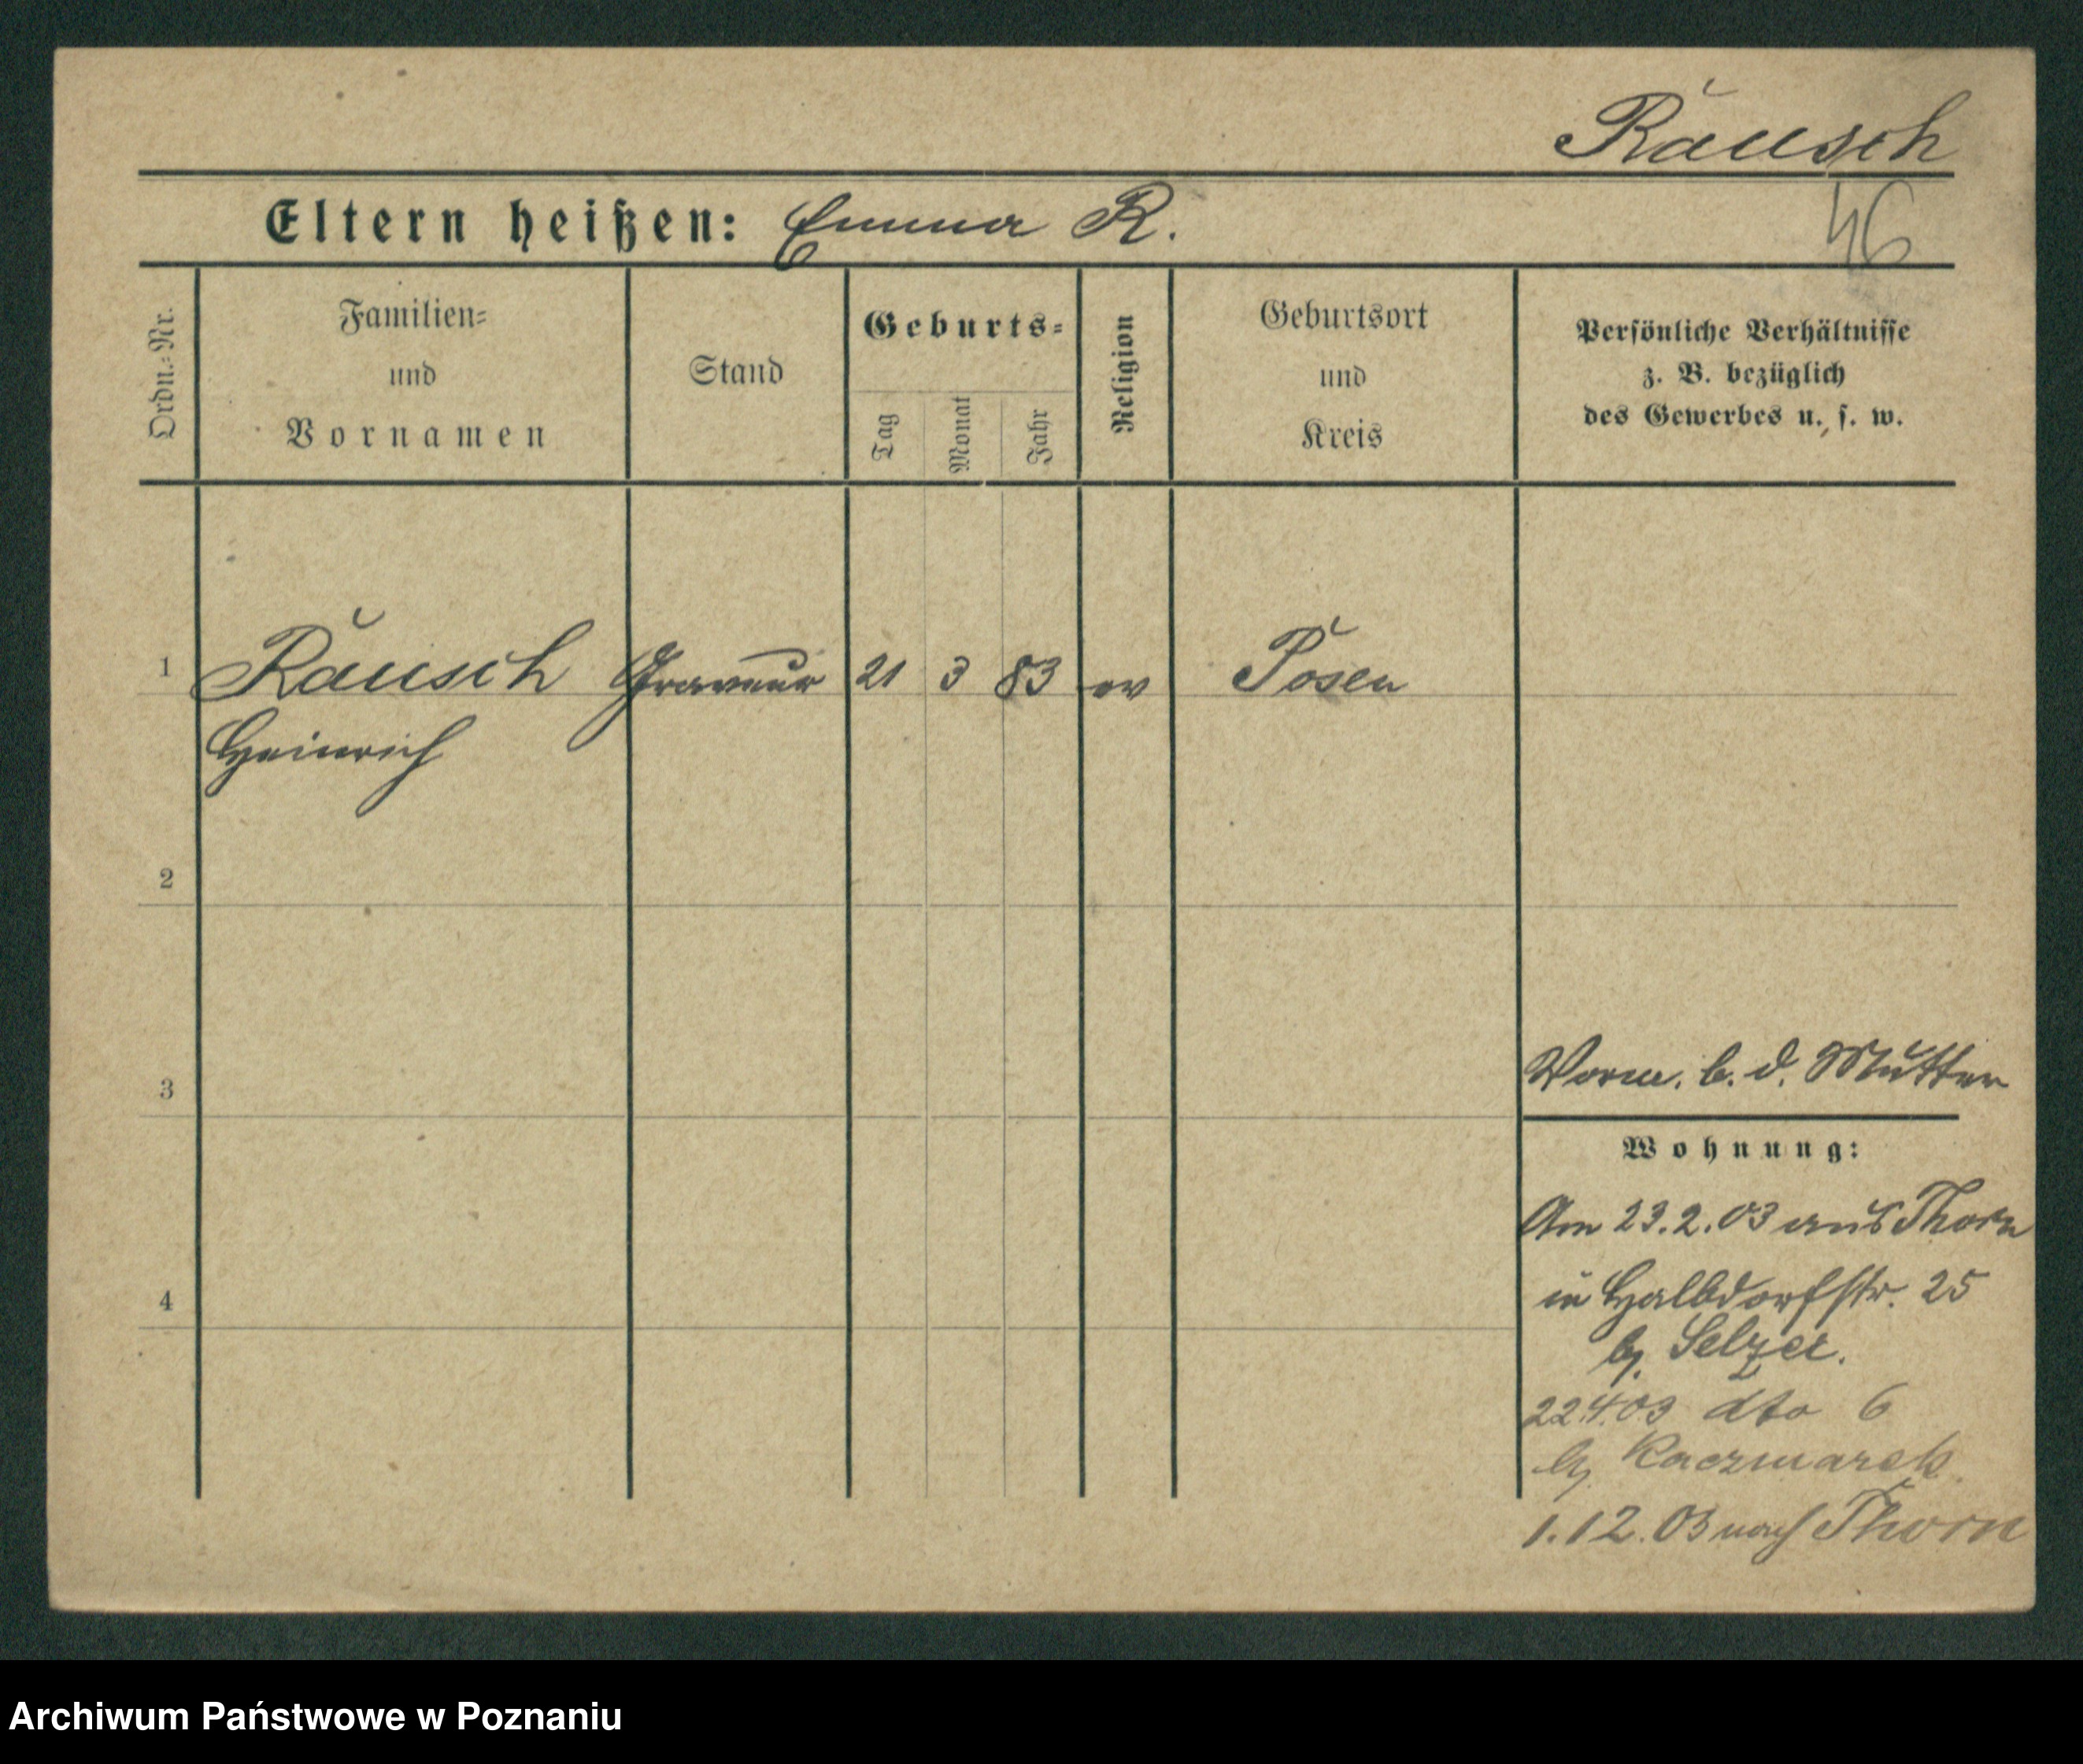 Rausch
Eltern heißen: Emma R.
46
Ordn.-Nr.
Familien-
und
Vornamen
Stand
Geburts-
Tag
Monat
Jahr
Religion
Geburtsort
und
Kreis
Persönliche Verhältnisse
z. B. bezüglich
des Gewerbes u. s. w.
1 Rausch Graveur 21 3 83 ev Posen
Heinrich
2
3
Vorm. b. d. Mutter
Wohnung:
Am 23.2.03 aus Thorn
in Halbdorfstr. 25
4
b/ Selzer.
22.4.03 dto 6
b/ Kaczmarek
1.12.03 nach Thorn
Archiwum Państwowe w Poznaniu